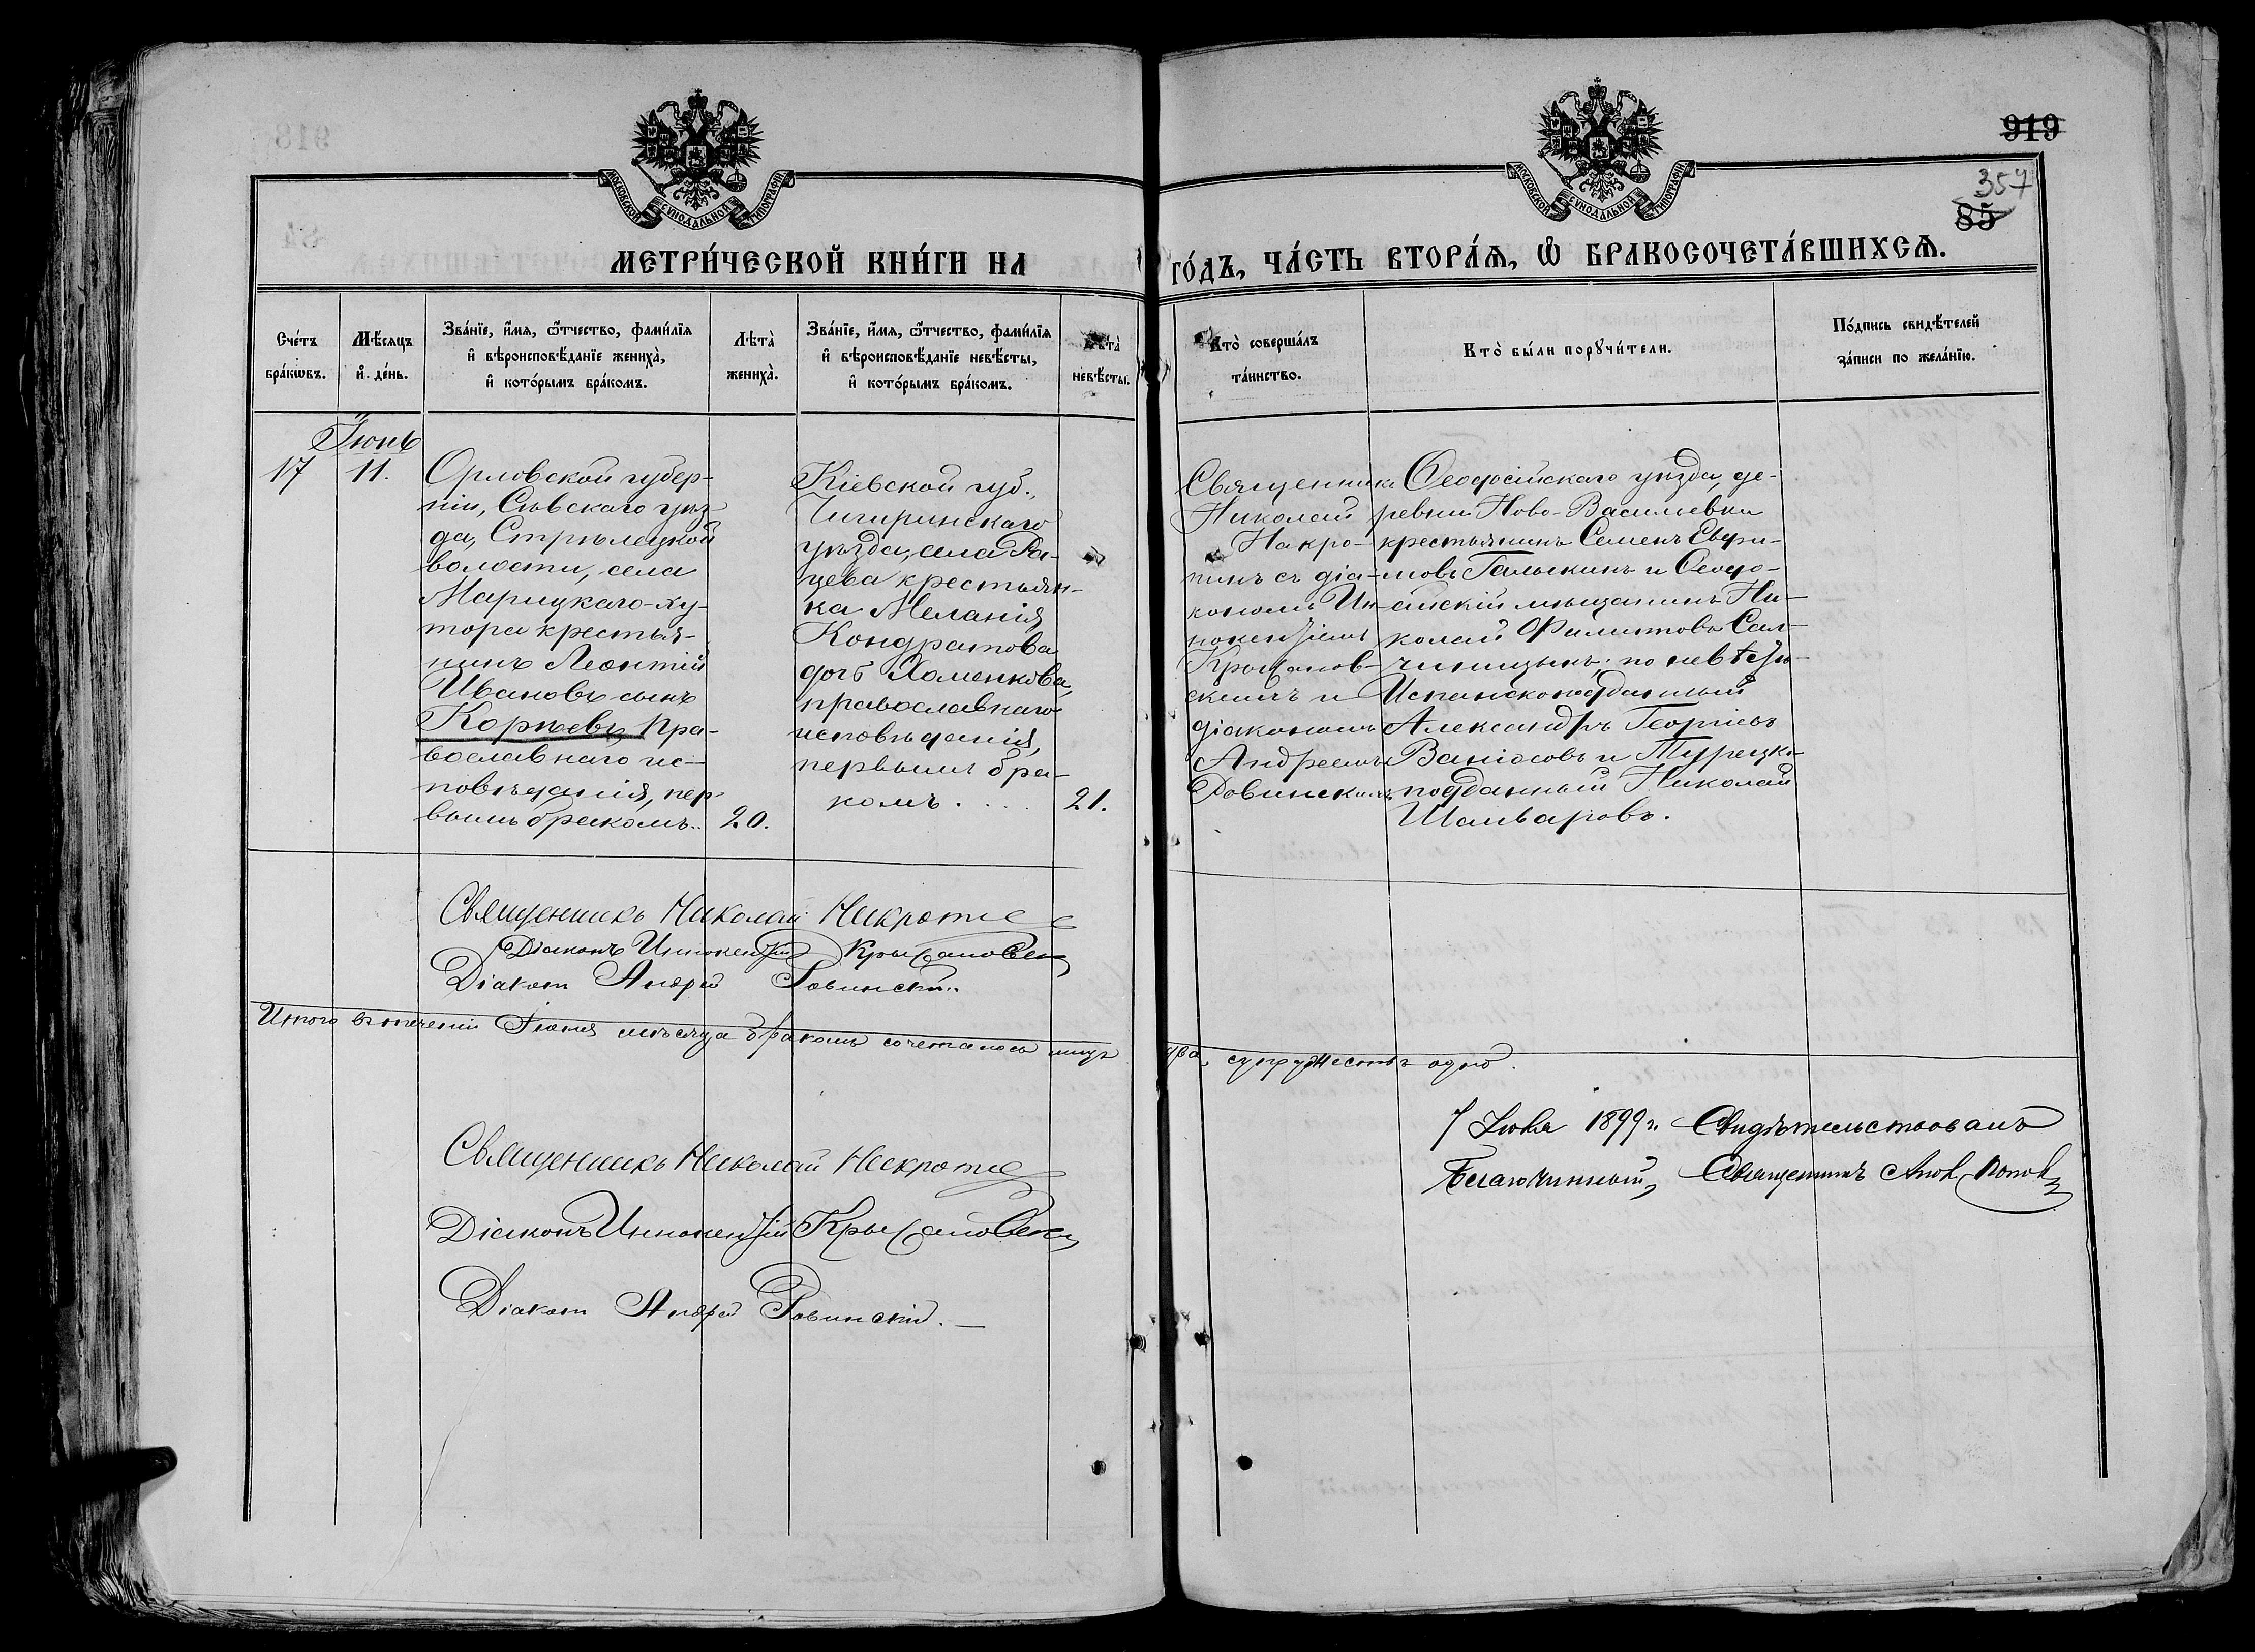 919
357
85
МОСКОВСКОЙ СѴНОДАЛЬНОЙ ТИПОГРАФІИ
МОСКОВСКОЙ СѴНОДАЛЬНОЙ ТИПОГРАФІИ
МЕТРИ́ЧЕСКОЙ КНИ́ГИ НА ГО́ДЪ, ЧА́СТЬ ВТОРА́Ѧ, Ѽ БРАКОСОЧЕТА́ВШИХСѦ.
Сче́тъ
бра́кѡвъ.
Мѣ́сяцъ
и҆ де́нь.
Зва́нїе, и҆́мя, ѻ҆́тчество, фами́лїя
и҆ вѣроисповѣ́данїе жениха̀,
и҆ кото́рымъ бра́комъ.
Лѣта̀
жениха̀.
Зва́нїе, и҆́мя, ѻ҆́тчество, фами́лїя
и҆ вѣроисповѣ́данїе невѣ́сты,
и҆ кото́рымъ бра́комъ.
Лѣта̀
невѣ́сты.
Кто̀ соверша́лъ
та́инство.
Кто̀ бы́ли порꙋчи́тели.
По́дпись свидѣ́телей
за́писи по жела́нїю.
Іюнь
17
11.
Орловской губер-
ніи, Сѣвскаго уѣз-
да, Стрѣлецкой
волости, села
Марицкаго-ху-
тора крестья-
нинъ Леонтій
Ивановъ сынъ
Корнѣевъ, пра-
вославнаго ис-
повѣданія, пер-
вымъ бракомъ..
20.
Кіевской губ.,
Чигиринскаго
уѣзда, села Ра-
цева крестьян-
ка Меланія
Кондратова
дочь Хоменкова,
православнаго
исповѣданія,
первымъ бра-
комъ....
21.
Священникъ
Николай
Накро-
пинъ съ діа-
кономъ Ин-
нокентіемъ
скимъ и
діакономъ
Андреемъ
Ровинскимъ
Ѳеодосійскаго уѣзда, де-
ревни Ново-Васильевки
крестьянинъ Семенъ
Галыкинъ и Ѳеодо-
сійскій мѣщанинъ Ни-
колай Филиповъ
по невѣстѣ:
Испанскоподданный
Александръ Георгіевъ
и Турецко-
подданный Николай
Шальваровъ.
Священникъ Николай
Діаконъ Иннокентій
Діаконъ Андрей Ровинскій.
Итого въ теченіи Іюня мѣсяца бракомъ сочеталось лицъ два, супружествъ одно.
Священникъ Николай
Діаконъ Иннокентій
Діаконъ Андрей Ровинскій.
7 Іюля 1899 г. Свидѣтельствовалъ
Благочинный, Священникъ Попов